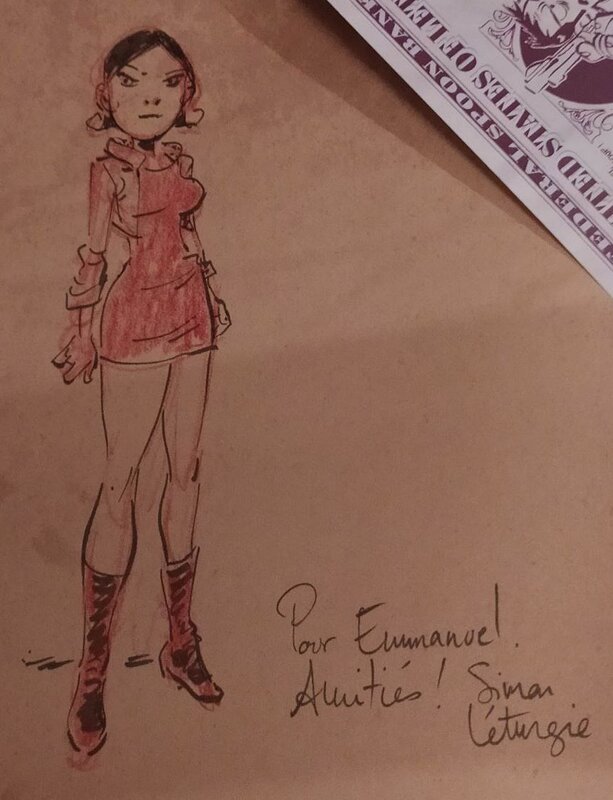 FEDERAL SPOON BANK
UNITED STATES OF LET
Pour Emmanuel.
Amitiés! Simon
Léturgie